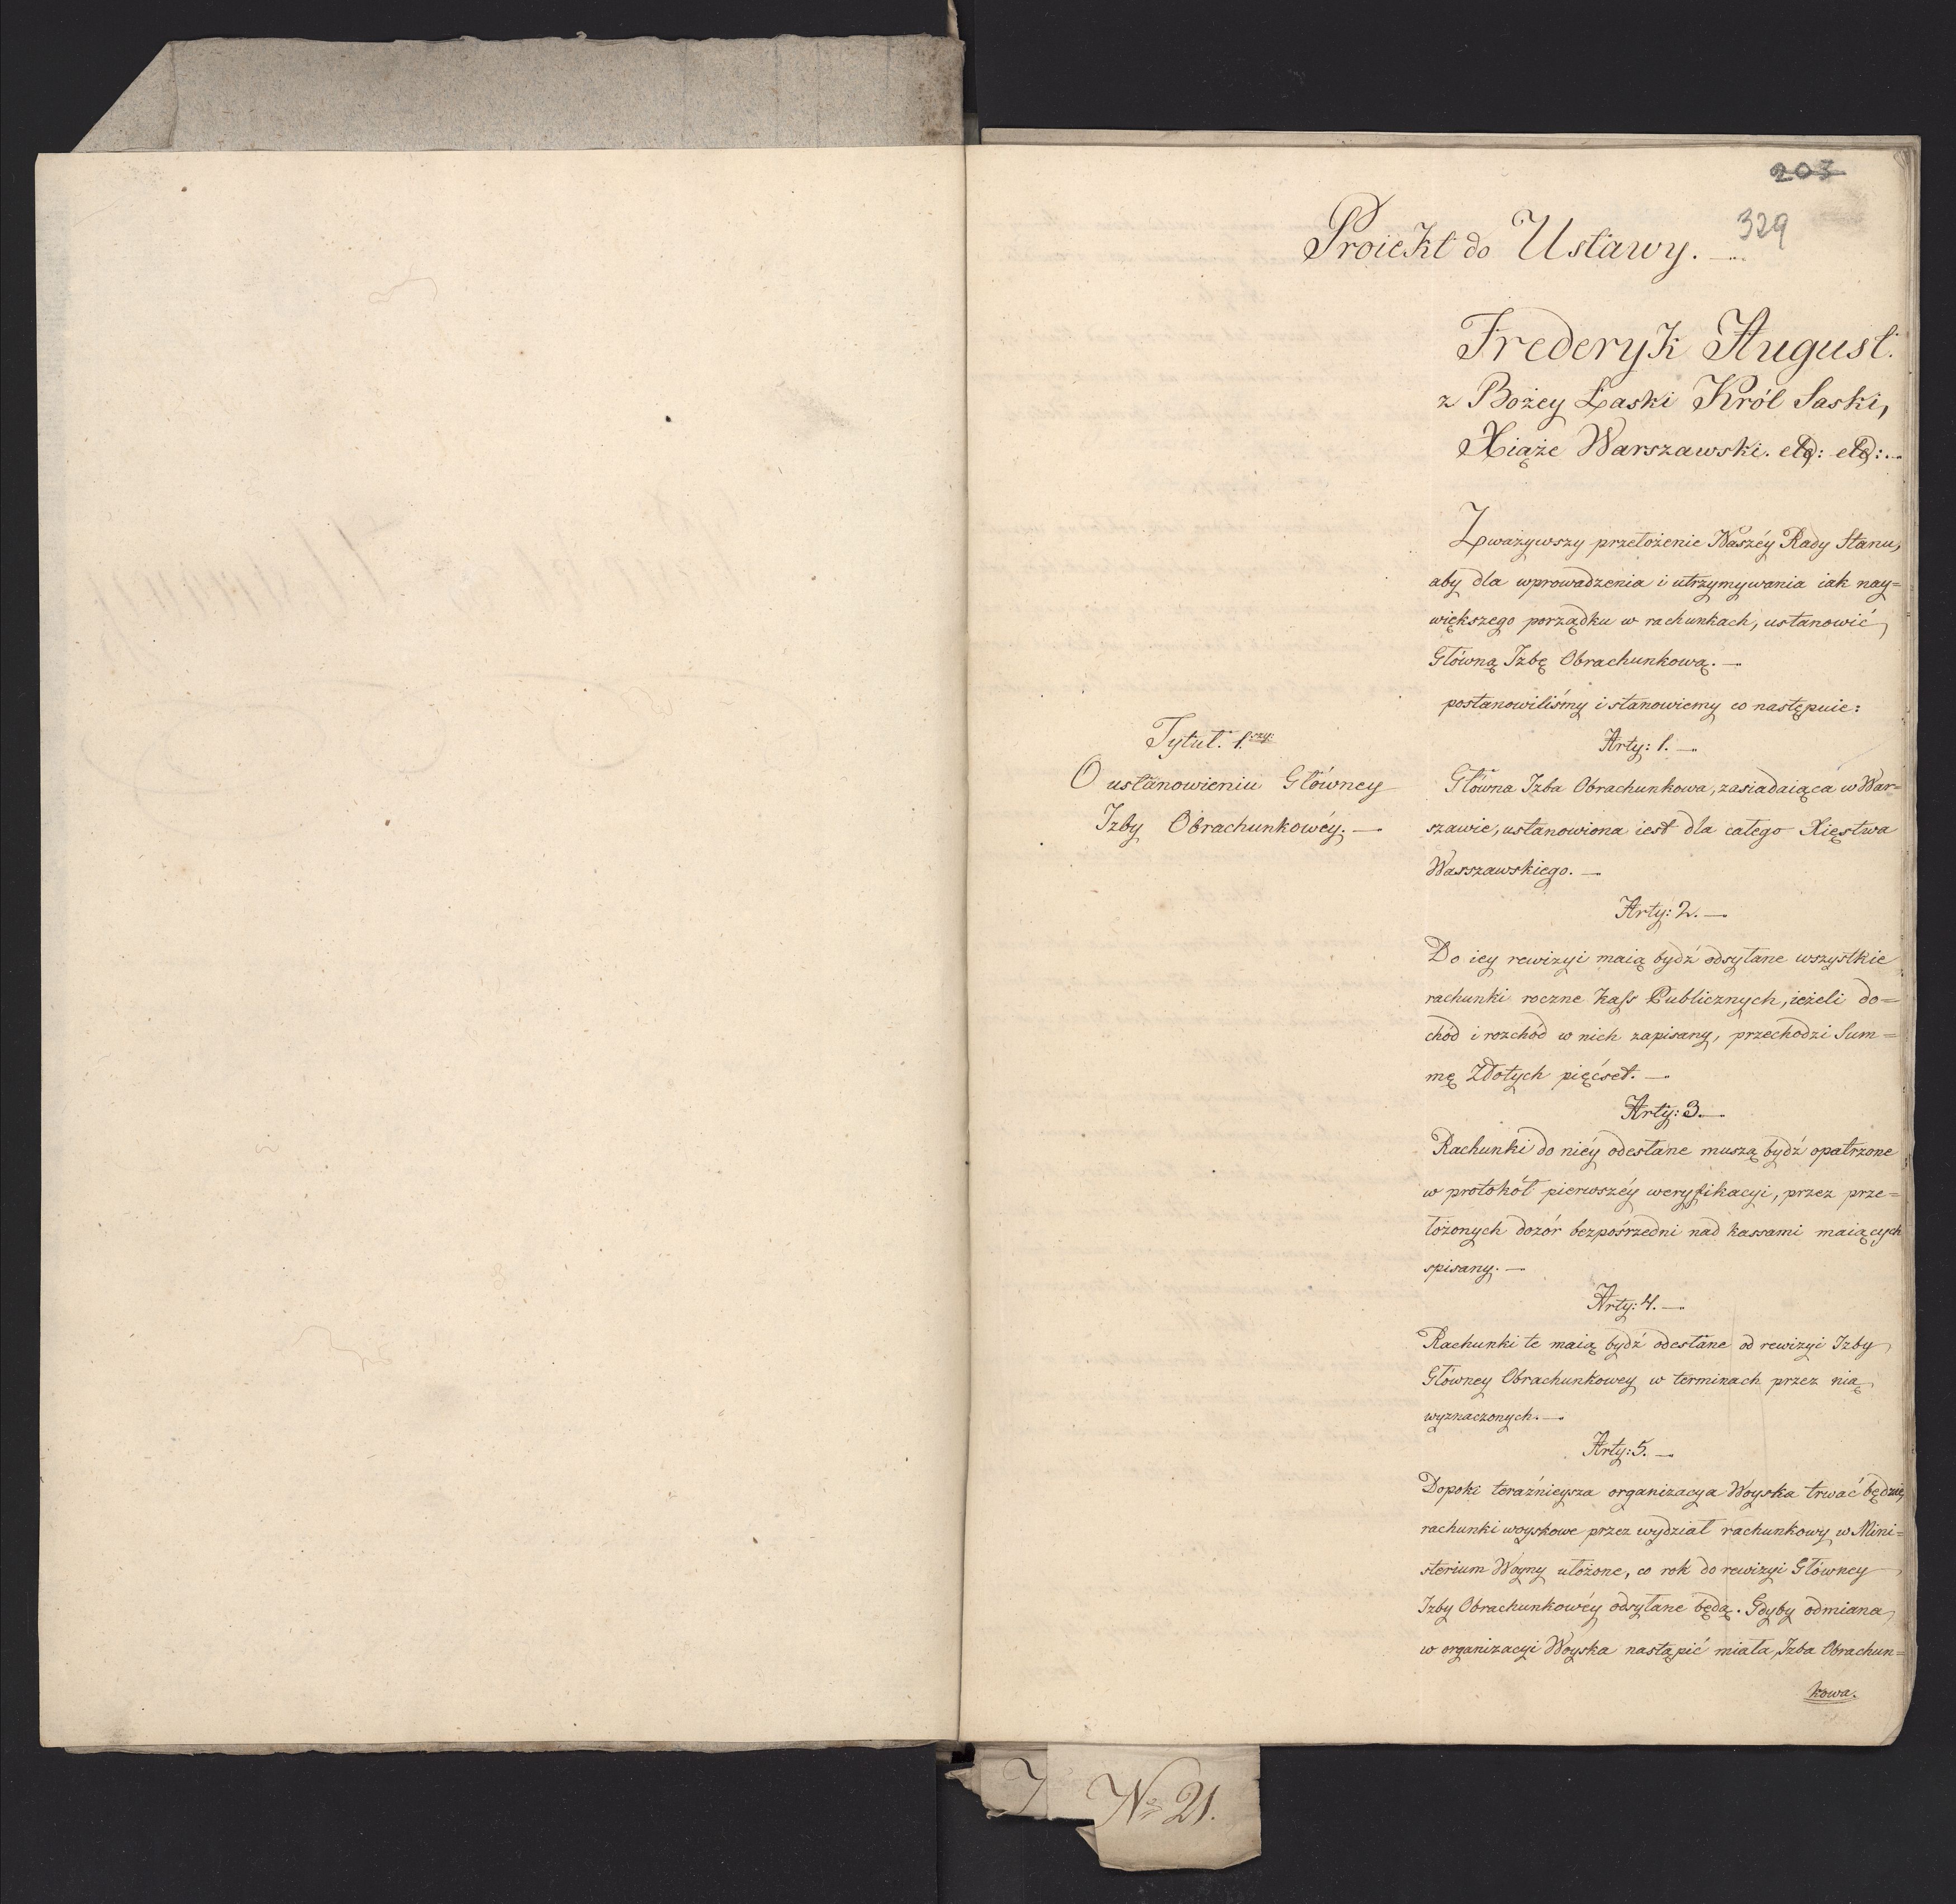 203
329
Proiekt do Ustawy. —
Frederyk August.
z Bożey Łaski Król Saski,
Xiąże Warszawski. etc: etc: —
Zważywszy przełożenie Naszéy Rady Stanu,
aby dla wprowadzenia i utrzymywania iak nay=
większego porządku w rachunkach, ustanowić
Główną Izbę Obrachunkową. —
postanowiliśmy i stanowiemy co następuie:
Tytuł. 1.szy:
O ustanowieniu Główney
Izby Obrachunkowéy. —
Arty: 1. —
Główna Izba Obrachunkowa, zasiadaiąca w War=
szawie, ustanowiona iest dla całego Xięstwa
Warszawskiego. —
Arty: 2. —
Do iey rewizyi maią bydź odsyłane wszystkie
rachunki roczne Kass Publicznych, ieżeli do=
chód i rozchód w nich zapisany, przechodzi Sum=
mę Złotych pięćset. —
Arty: 3. —
Rachunki do niéy odesłane muszą bydź opatrzone
w protokół pierwszéy weryfikacyi, przez prze=
łożonych dozór bezpośrzedni nad kassami maiących
spisany. —
Arty: 4. —
Rachunki te maią bydź odesłane od rewizyi Izby
Główney Obrachunkowey w terminach przez nią
wyznaczonych. —
Arty: 5. —
Dopoki teraźnieysza organizacya Woyska trwać będzie,
rachunki woyskowe przez wydział rachunkowy w Mini=
sterium Woyny ułożone, co rok do rewizyi Główney
Izby Obrachunkowéy odsyłane będą. Gdyby odmiana
w organizacyi Woyska nastąpić miała, Izba Obrachun=
kowa.
No 21.